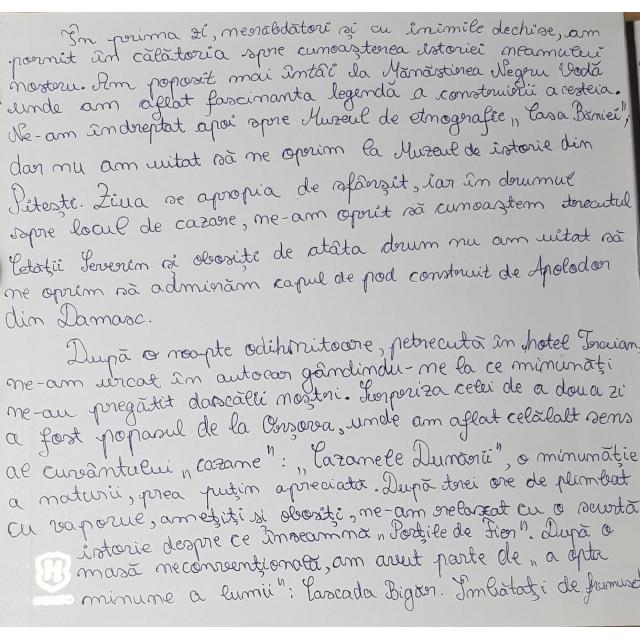 În prima zi, nerăbdători și cu inimile dechise, am
pornit în călătoria spre cunoașterea istoriei neamului
nostru. Am poposit mai întâi la Mănăstirea Negru Vodă
unde am aflat fascinanta legendă a construirii acesteia.
Ne-am îndreptat apoi spre Muzeul de etnografie „Casa Băniei",
dar nu am uitat să ne oprim la Muzeul de istorie din
Pitești. Ziua se apropia de sfârșit, iar în drumul
spre locul de cazare, ne-am oprit să cunoaștem trecutul
Cetății Severin și obosiți de atâta drum nu am uitat să
ne oprim să admirăm capul de pod construit de Apolodor
din Damasc.
După o noapte odihnitoare, petrecută în hotel Traian,
ne-am urcat în autocar gândindu-ne la ce minunăți
ne-au pregătit dascălii noștri. Surpriza celei de a doua zi
a fost popasul de la Orșova, unde am aflat celălalt sens
al cuvântului „cazane": „Cazanele Dunării", o minunăție
a naturii, prea puțin apreciată. După trei ore de plimbat
cu vaporul, amețiți și obosiți, ne-am relaxat cu o scurtă
istorie despre ce înseamnă „Porțile de Fier". După o
masă neconvențională, am avut parte de „a opta
minune a lumii": Cascada Bigăr. Îmbătați de frumuse